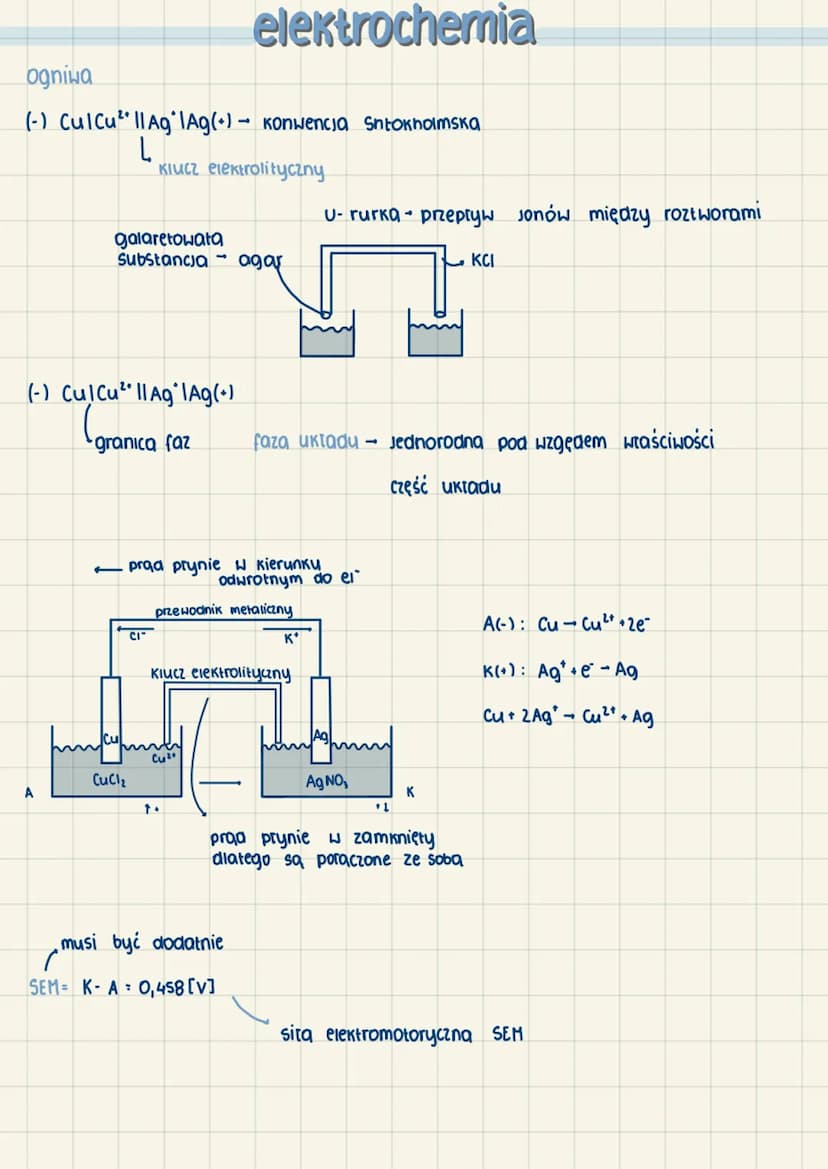 elektrochemia
ogniwa
(-) Cu|Cu²⁺ || Ag⁺|Ag(+) → konwencja Sntokholmska
klucz elektrolityczny
U- rurka → przepływ jonów między roztworami
galaretowata
substancja → agar
KCl
(-) Cu|Cu²⁺ || Ag⁺|Ag(+)
granica faz
faza układu → jednorodna pod wzgędem właściwości
część układu
← prąd płynie w kierunku
odwrotnym do el⁻
przewodnik metaliczny
Cl⁻
K⁺
klucz elektrolityczny
Cu
Ag
Cu²⁺
CuCl₂
AgNO₃
A
K
↑+
+↓
A(-): Cu → Cu²⁺ + 2e⁻
K(+): Ag⁺ + e⁻ → Ag
Cu + 2Ag⁺ → Cu²⁺ + Ag
prąd płynie w zamknięty
dlatego są połączone ze sobą
musi być dodatnie
SEM= K- A = 0,458[V]
siła elektromotoryczna SEM